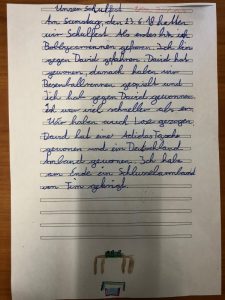 Unser Schulfest
Am Samstag, den 23.6.18 hatten
wir Schulfest. Als erstes bin ich
Bobbycarrennen gefaren. Ich bin
gegen David gefahren. David hat
gewonen, danach haben wir
gespielt und
Ich hab gegen David gewonnen
Ich war viel schneller als er.
Wir haben auch Lose gezogen
David hat eine Adidas Tasche
gewonen und ein Deutschland
Armband gewonen. Ich habe
am Ende ein Schlüsselarmband
von Tim gekrigt.